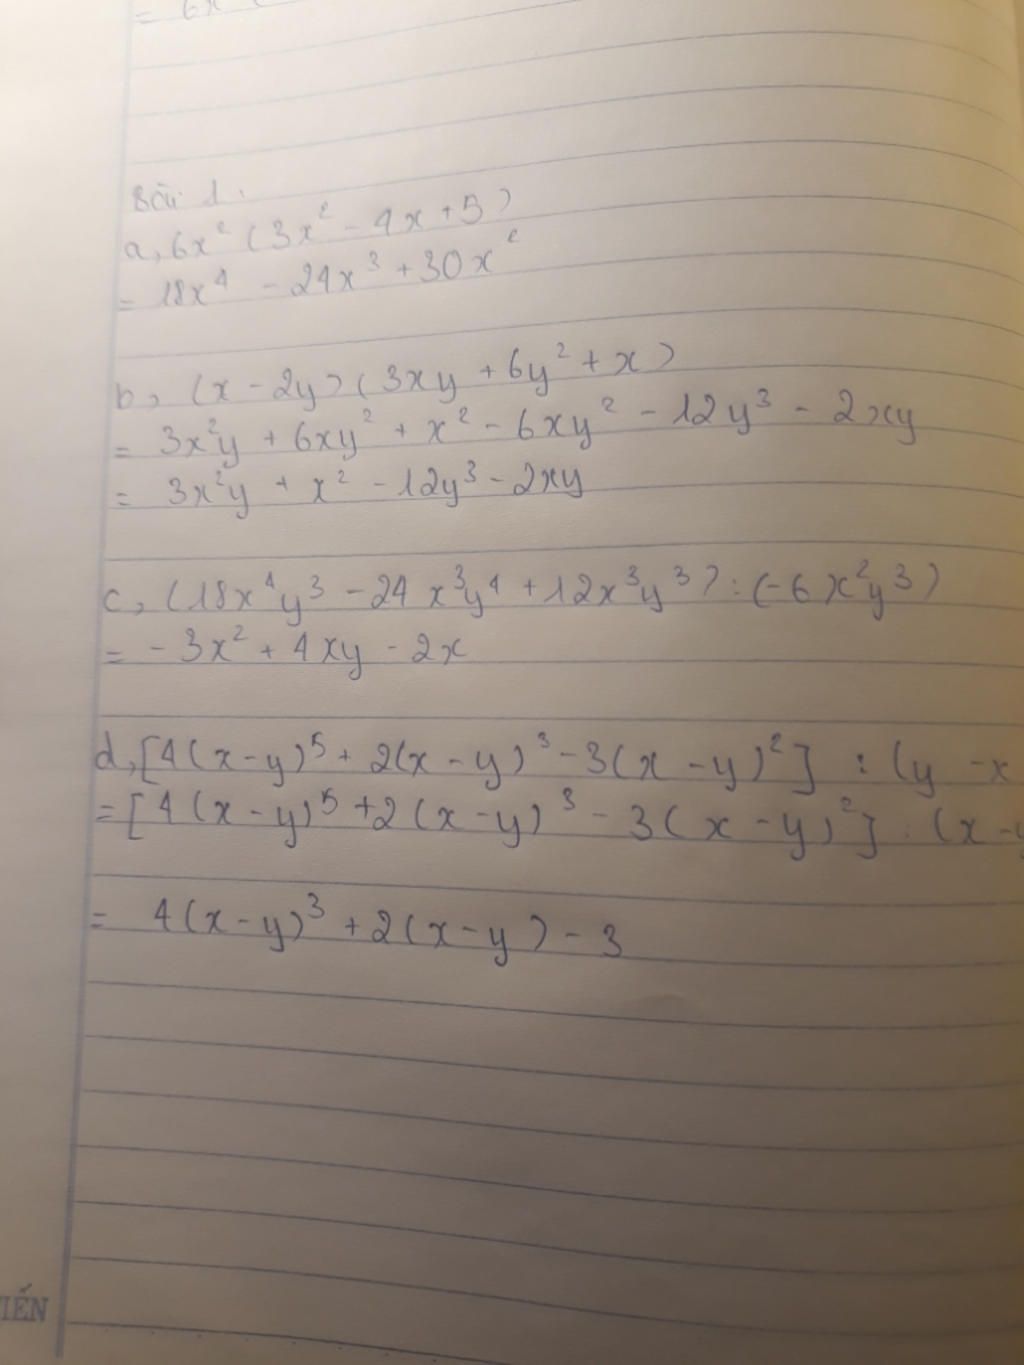 = 6x
Bài 1.
a, 6x² (3x² - 4x + 5)
= 18x⁴ - 24x³ + 30x²
b, (x - 2y) (3xy + 6y² + x)
= 3x²y + 6xy² + x² - 6xy² - 12y³ - 2xy
= 3x²y + x² - 12y³ - 2xy
c, (18x⁴y³ - 24x³y⁴ + 12x³y³) : (-6x²y³)
= - 3x² + 4xy - 2x
d, [4(x-y)⁵ + 2(x - y)³ - 3(x - y)²] : (y - x
= [4(x-y)⁵ + 2(x-y)³ - 3(x-y)²] : (x - y
= 4(x-y)³ + 2(x-y) - 3
IẾN